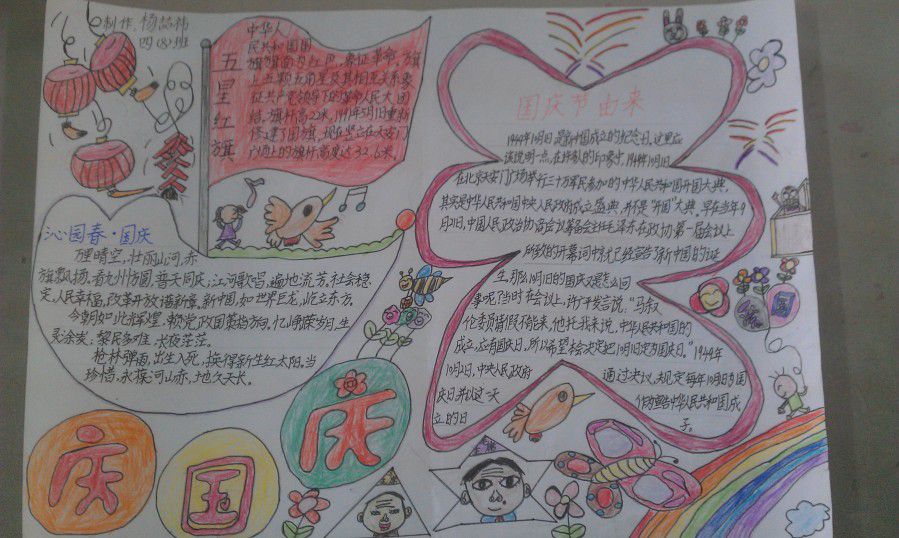 制作:杨喆祎
四(8)班
五星红旗
中华人
民共和国国
旗旗面为红色,象征革命,旗
上五颗五角星及其相互关系象
征共产党领导下的革命人民大团
结。旗杆高22米,1991年5月1日重新
修建了国旗,现在竖立在天安门
广场上的旗杆高度达32.6米。
沁园春·国庆
万里晴空,壮丽山河,赤
旗飘扬。看九州方圆,普天同庆;江河歌唱,遍地流芳。社会稳
定,人民幸福,改革开放谱新章。新中国,如世界巨龙,屹立东方。
今朝如此辉煌,赖党政国策指方向。忆峥嵘岁月,生
灵涂炭;黎民多难,长夜茫茫。
枪林弹雨,出生入死,换得新生红太阳。当
珍惜,永葆河山赤,地久天长。
国庆节由来
1949年10月1日是新中国成立的纪念日。这里应
该说明一点,在许多人的印象中,1949年10月1日
在北京天安门广场举行三十万军民参加的中华人民共和国开国大典,
其实是中华人民共和国中央人民政府成立盛典,并不是"开国"大典。早在当年9
月21日,中国人民政治协商会议筹备会主任毛泽东在政协第一届会议上
所致的开幕词中就已经宣告了新中国的诞
生。那么10月1日的国庆又是怎么回
事呢?当时在会议上,许广平发言说:"马叙
伦委员请假不能来,他托我来说,中华人民共和国的
成立,应有国庆日,所以希望本会决定把10月1日定为国庆日。"1949年
10月2日,中央人民政府通过决议,规定每年10月1日为国
庆日,并以这一天作为宣告中华人民共和国成
立的日子。
庆
国
庆
国